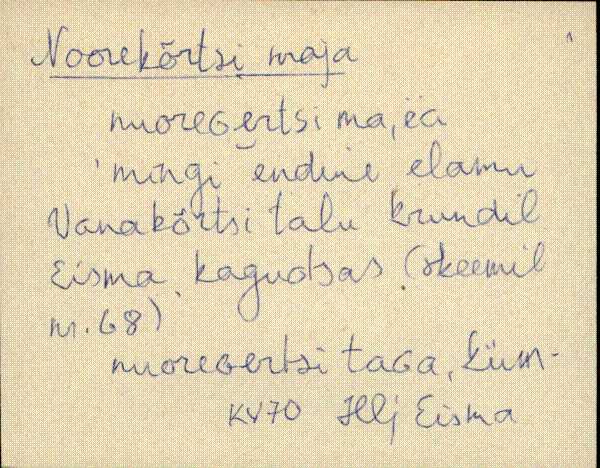 Noorekõrtsi maja
nuoreɢertsi ma,ea
'mingi endine elamu
Vanakõrtsi talu krundil
Eisma kagudsas (skeemil
nr. 68)
nuoreɢertsi taɢa, küm-
KV70 Hlj Eisma